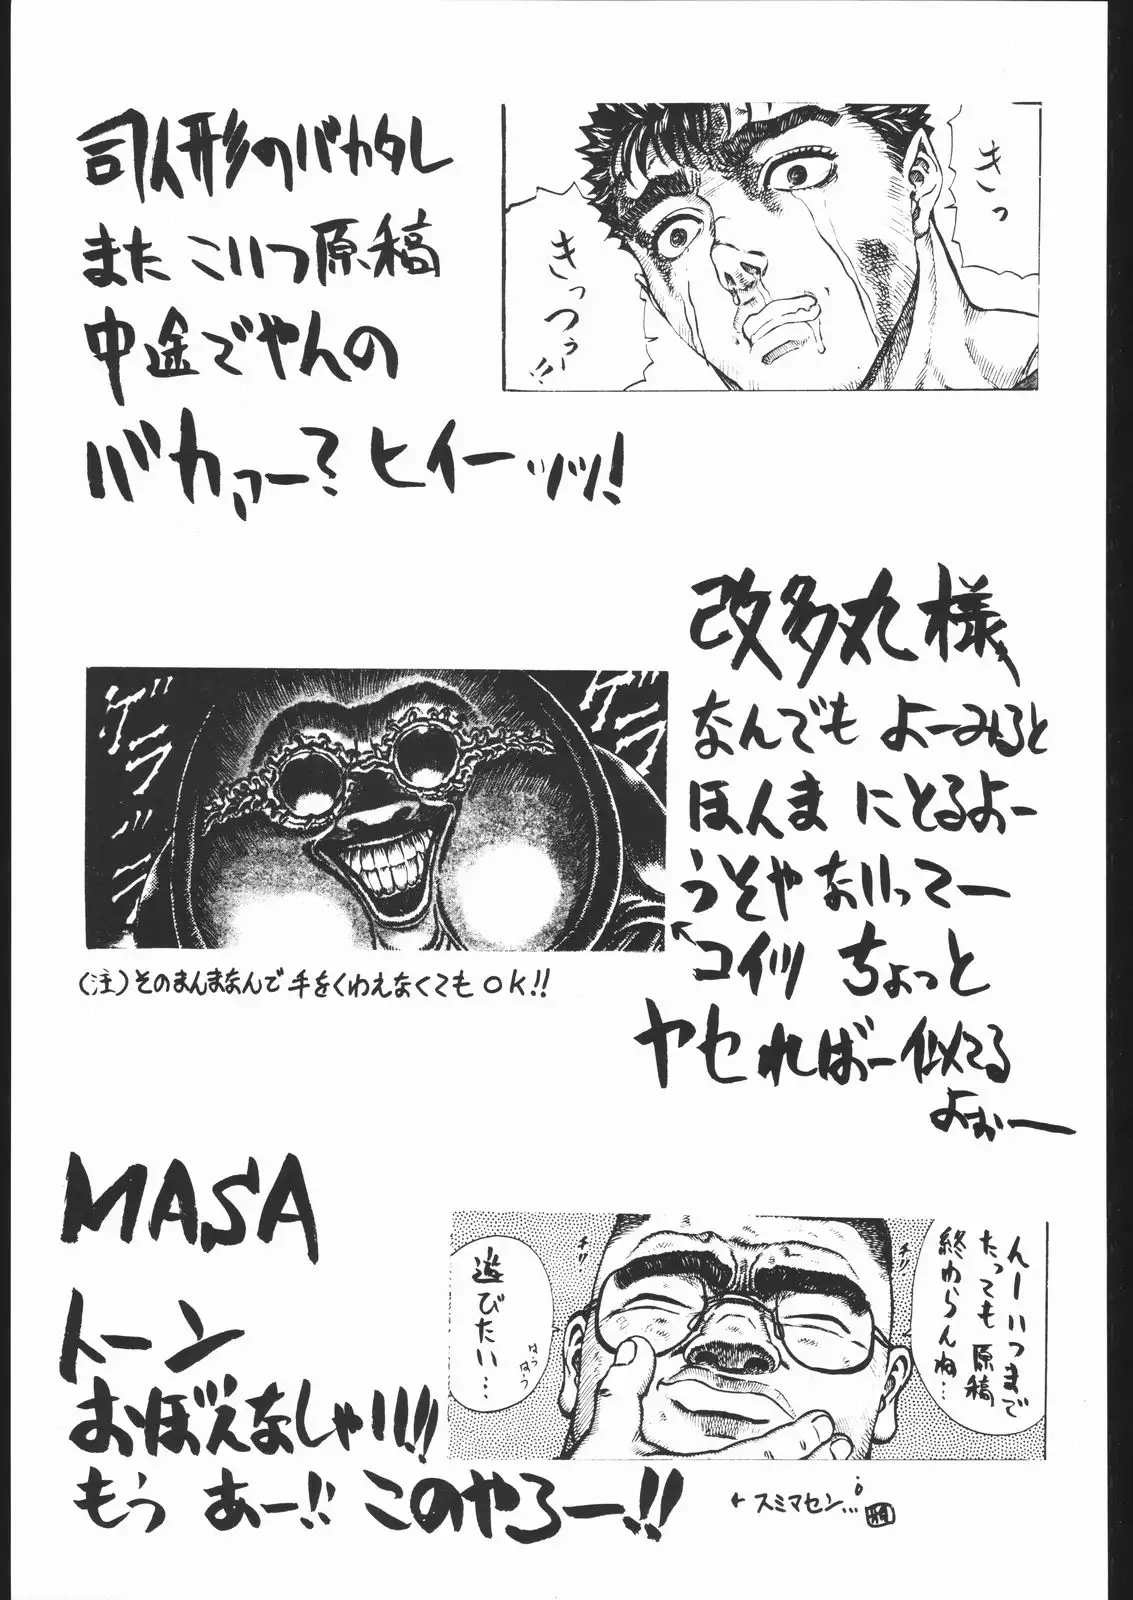 司人形のバカタレ
また こいつ原稿
中途でやんの
バカァー?ヒイーッッ!
きっ
きっつぅー!!
改多丸様
なんでも よーみると
ほんま にとるよー
うそや ないってー
コイツ ちょっと
ヤセればー似てる
よぉー
ゲラゲラ
(注)そのまんまなんで 手をくわえなくても OK!!
MASA
トーン
おぼえなしゃい!!
もう あー!! このやろー!!
んーいつまで
たっても原稿
終わらんね…
チリ
チリ
遊びたい…
はうはう
スミマセン…